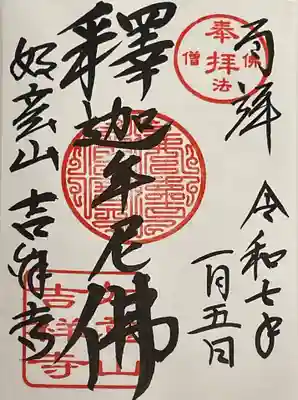 百拝
奉拝
佛法僧
令和七年
一月五日
釋迦牟尼佛
山吉祥寺
山
吉祥寺